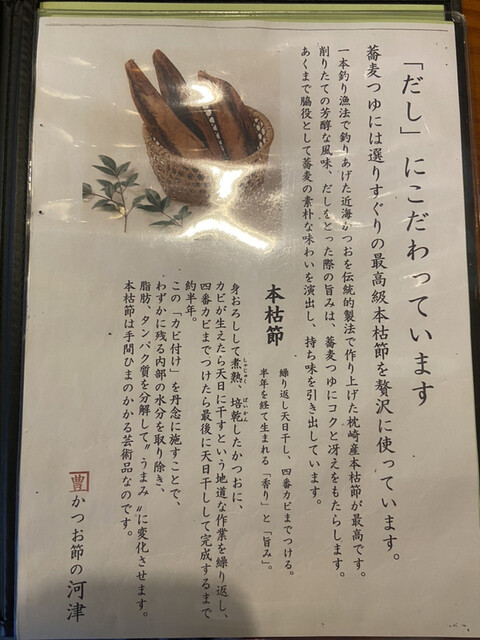 「だし」にこだわっています
蕎麦つゆには選りすぐりの最高級本枯節を贅沢に使っています。
一本釣り漁法で釣りあげた近海かつおを伝統的製法で作り上げた枕崎産本枯節が最高です。
削りたての芳醇な風味、だしをとった際の旨みは、蕎麦つゆにコクと冴えをもたらします。
あくまで脇役として蕎麦の素朴な味わいを演出し、持ち味を引き出しています。
本枯節
繰り返し天日干し、四番カビまでつける。
半年を経て生まれる「香り」と「旨み」。
身おろしして煮熟、焙乾したかつおに、
しゃじゅく ばいかん
カビが生えたら天日に干すという地道な作業を繰り返し、
四番カビまでつけたら最後に天日干しして完成するまで
約半年。
この「カビ付け」を丹念に施すことで、
わずかに残る内部の水分を取り除き、
脂肪、タンパク質を分解して〝うまみ〟に変化させます。
本枯節は手間ひまのかかる芸術品なのです。
豊 かつお節の河津